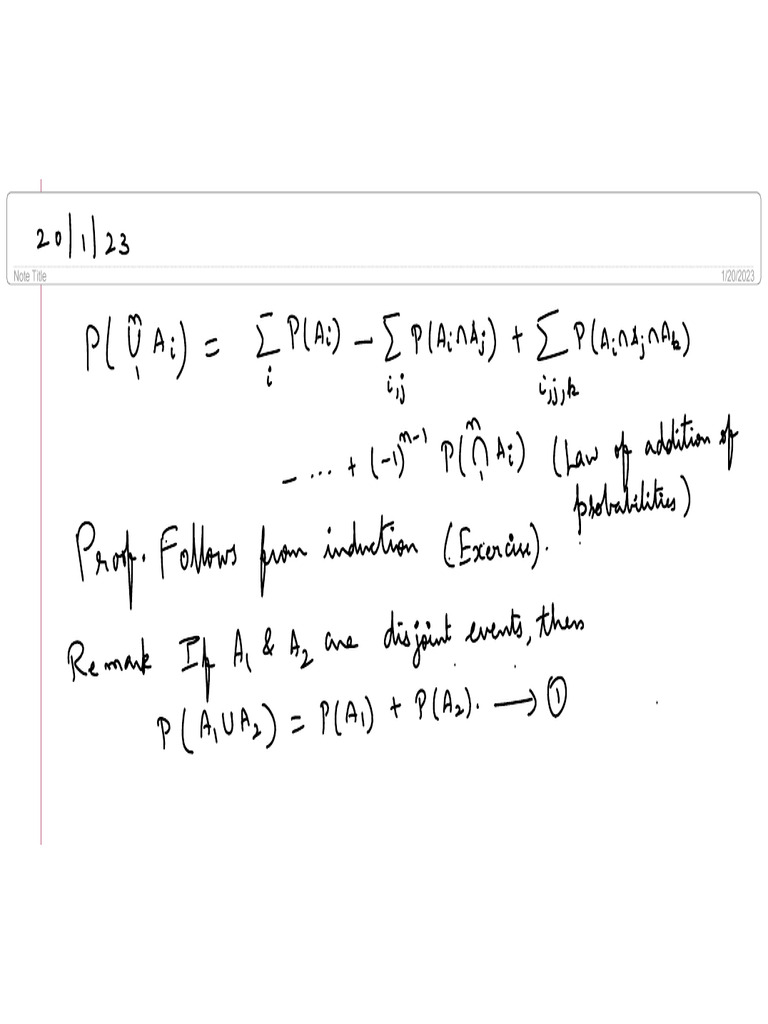 20/1/23
Note Title 1/20/2023
P(⋃₁ⁿ Aᵢ) = ∑ᵢ P(Aᵢ) − ∑ᵢ,ⱼ P(Aᵢ∩Aⱼ) + ∑ᵢ,ⱼ,ₖ P(Aᵢ∩Aⱼ∩Aₖ)
− ... + (−1)ⁿ⁻¹ P(⋂₁ⁿ Aᵢ) (Law of addition of
probabilities)
Proof. Follows from induction (Exercise).
Remark If A₁ & A₂ are disjoint events, then
P(A₁∪A₂) = P(A₁) + P(A₂). ⟶ ①